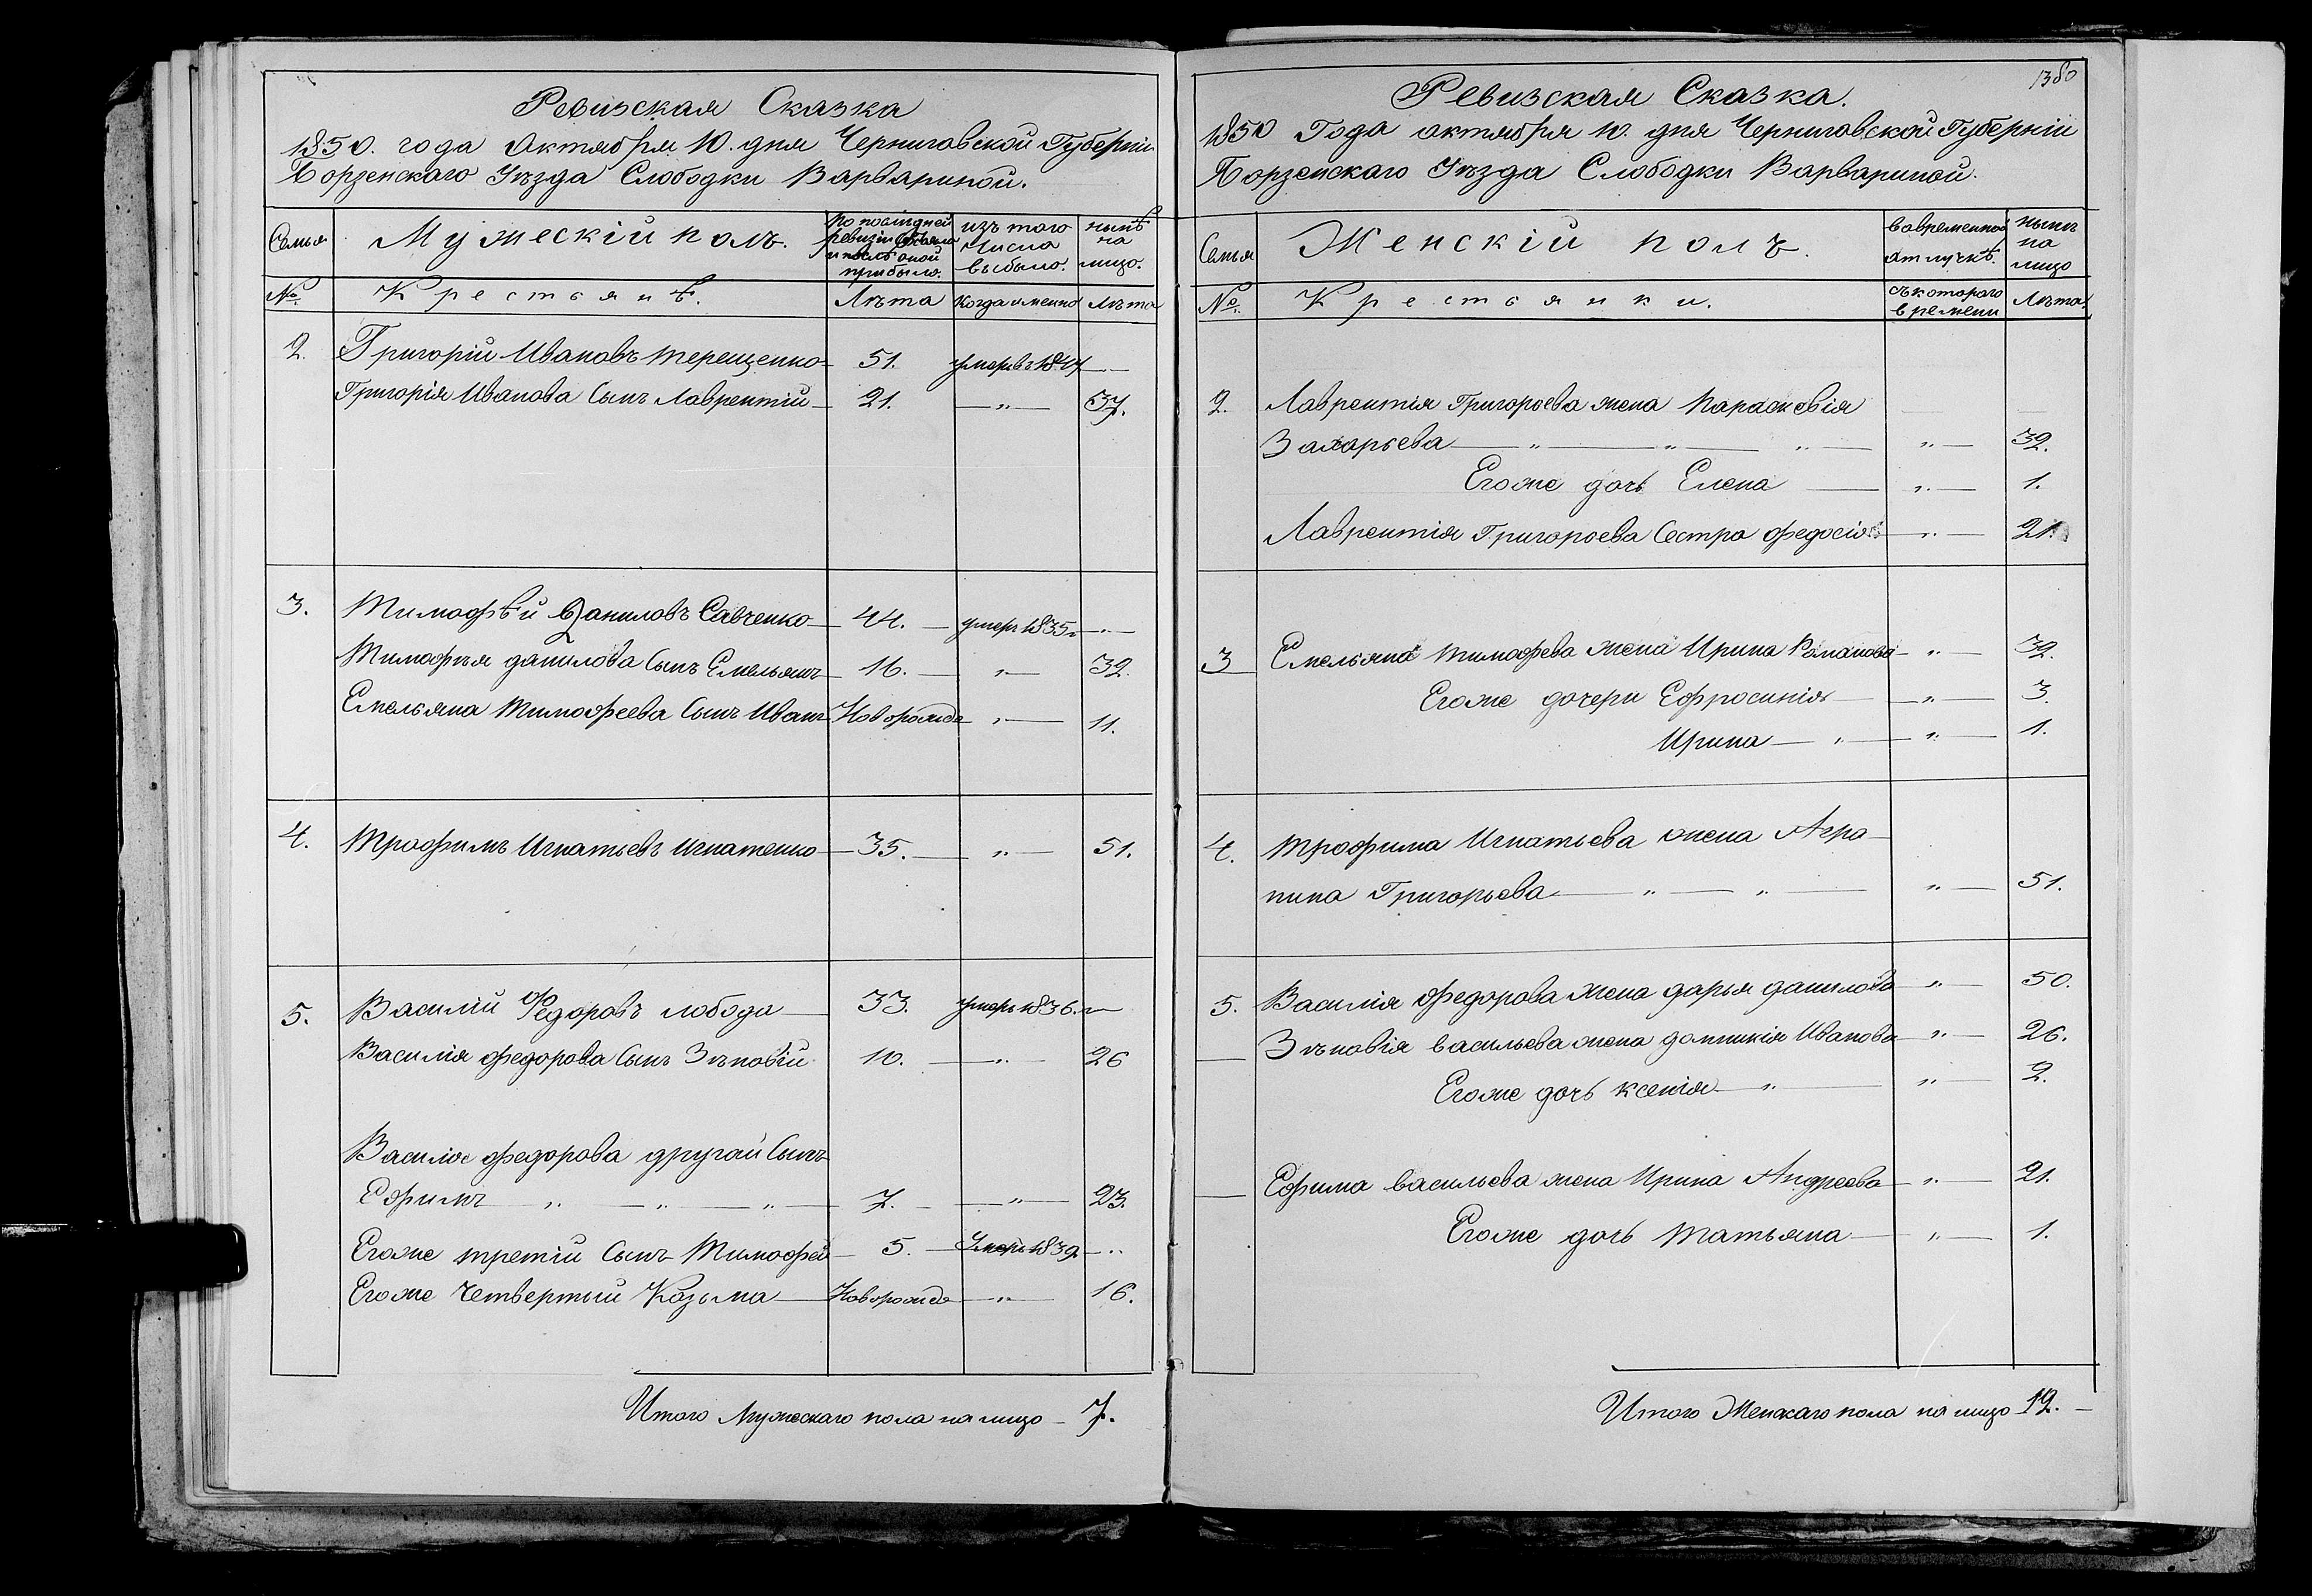 Ревизская Сказка
1850. года Октября 10. дня Черниговской Губерніи
Борзенскаго Уѣзда Слободки Варвариной.
Семья
Мужескій полъ.
По последней ревизіи состояло и послѣ оной прибыло.
изъ того числа выбыло.
нынѣ на лицо.
№
Крестьянѣ.
Лѣта
Когда именно
Лѣта
2. Григорій Ивановъ Терещенко 51. умеръ въ 1847 —
Григорія Иванова Сынъ Лаврентій 21. — „ — 37.
3. Тимофѣй Даниловъ Савченко 44. — умеръ 1835 — „ —
Тимофѣя данилова Сынъ Емельянъ 16. — „ — 32.
Емельяна Тимофеева Сынъ Иванъ Новорожде „ — 11.
4. Трофимъ Игнатьевъ Игнатенко 35. — „ — 51.
5. Василій Федоровъ лобода 33. умеръ 1836. „
Василія федорова Сынъ Зѣновій 10. — „ — 26
Василія федорова другой Сынъ
Ефимъ — „ — „ — „ — 7. — „ — 23.
Егоже третій Сынъ Тимофей 5. — Умеръ 1839 — „
Егоже Четвертый Козьма — Новорожде — „ — 16.
Итого Мужескаго пола на лицо — 7.
1380
Ревизская Сказка.
1850 Года октября 10. дня Черниговской Губерніи
Борзенскаго Уѣзда Слободки Варвариной.
Семья
Женскій полъ.
Вовременной отлучкѣ.
Нынѣ на лицо
№.
Крестьянки.
съ котораго времени
Лѣта
2. Лаврентія Григорьева жена Парасковія
Захарьева — „ — „ — „ — „ — 32.
Егоже дочь Елена — „ — 1.
Лаврентія Григорьева Сестра федосія — „ — 21.
3 Емельяна Тимофева жена Ирина Романова — „ — 32.
Егоже дочери Ефросинія — „ — 3.
Ирина — „ — „ — 1.
4. Трофима Игнатьева жена Агра-
пина Григорьева — „ — „ — „ — 51.
5. Василія федорова жена дарья данилова „ — 50.
Зѣновія васильева жена домникія Иванова „ — 26.
Егоже дочь ксенія — „ — „ — 2.
Ефима васильева жена Ирина Андреева — „ — 21.
Егоже дочь Татьяна — „ — 1.
Итого Женскаго пола на лицо 12. —